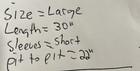 Size = Large
Length = 30"
Sleeves = Short
pit to pit = 22"